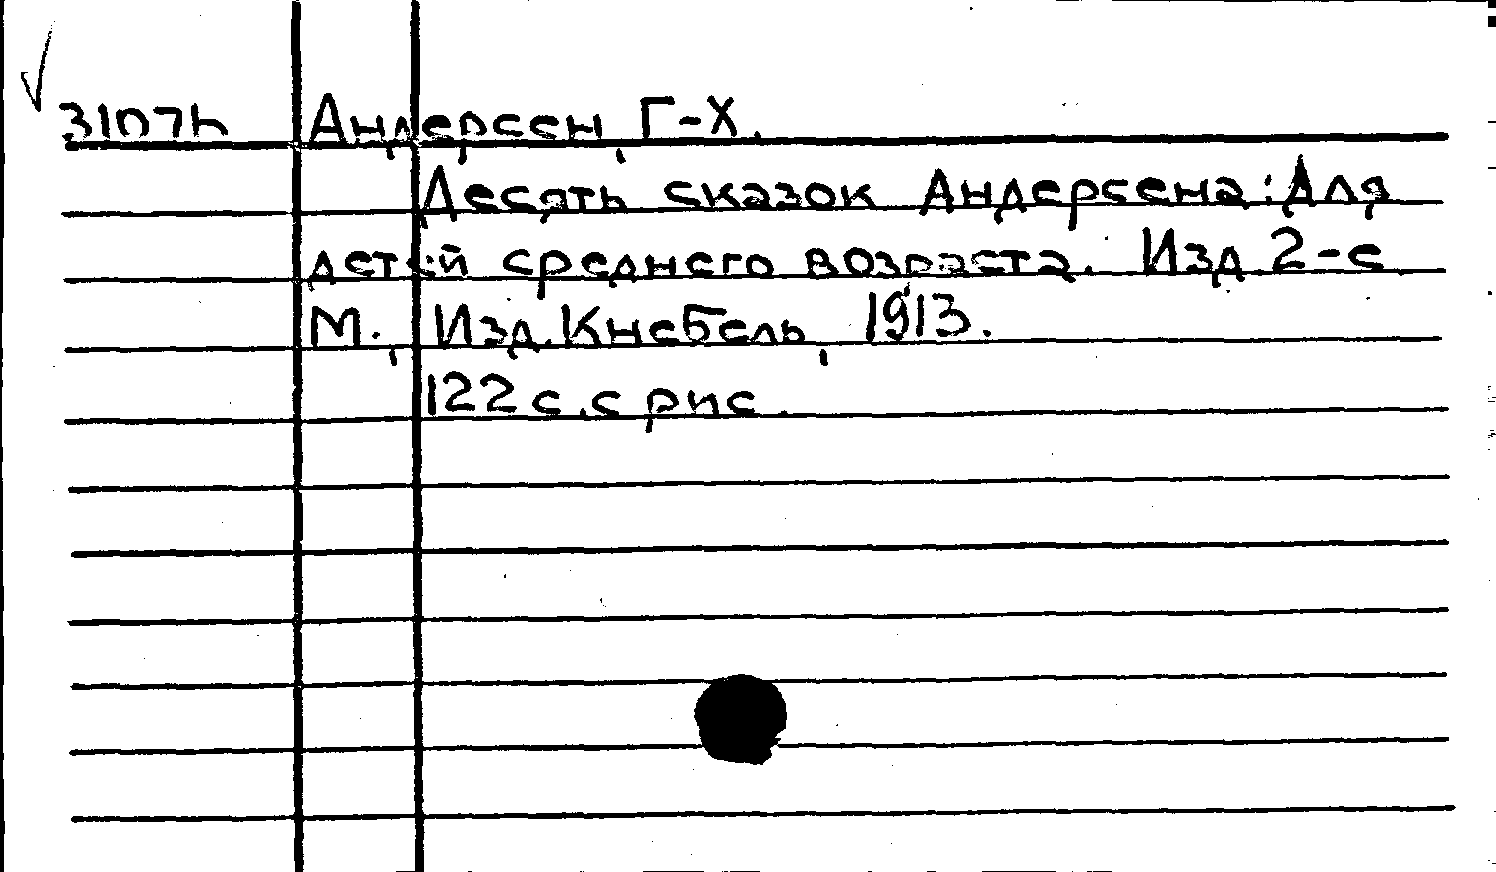 3107h Андерсен, Г-Х.
Десять сказок Андерсена: Для
детей среднего возраста. Изд. 2-е
М., Изд. Кнебель, 1913.
122 с. с рис.